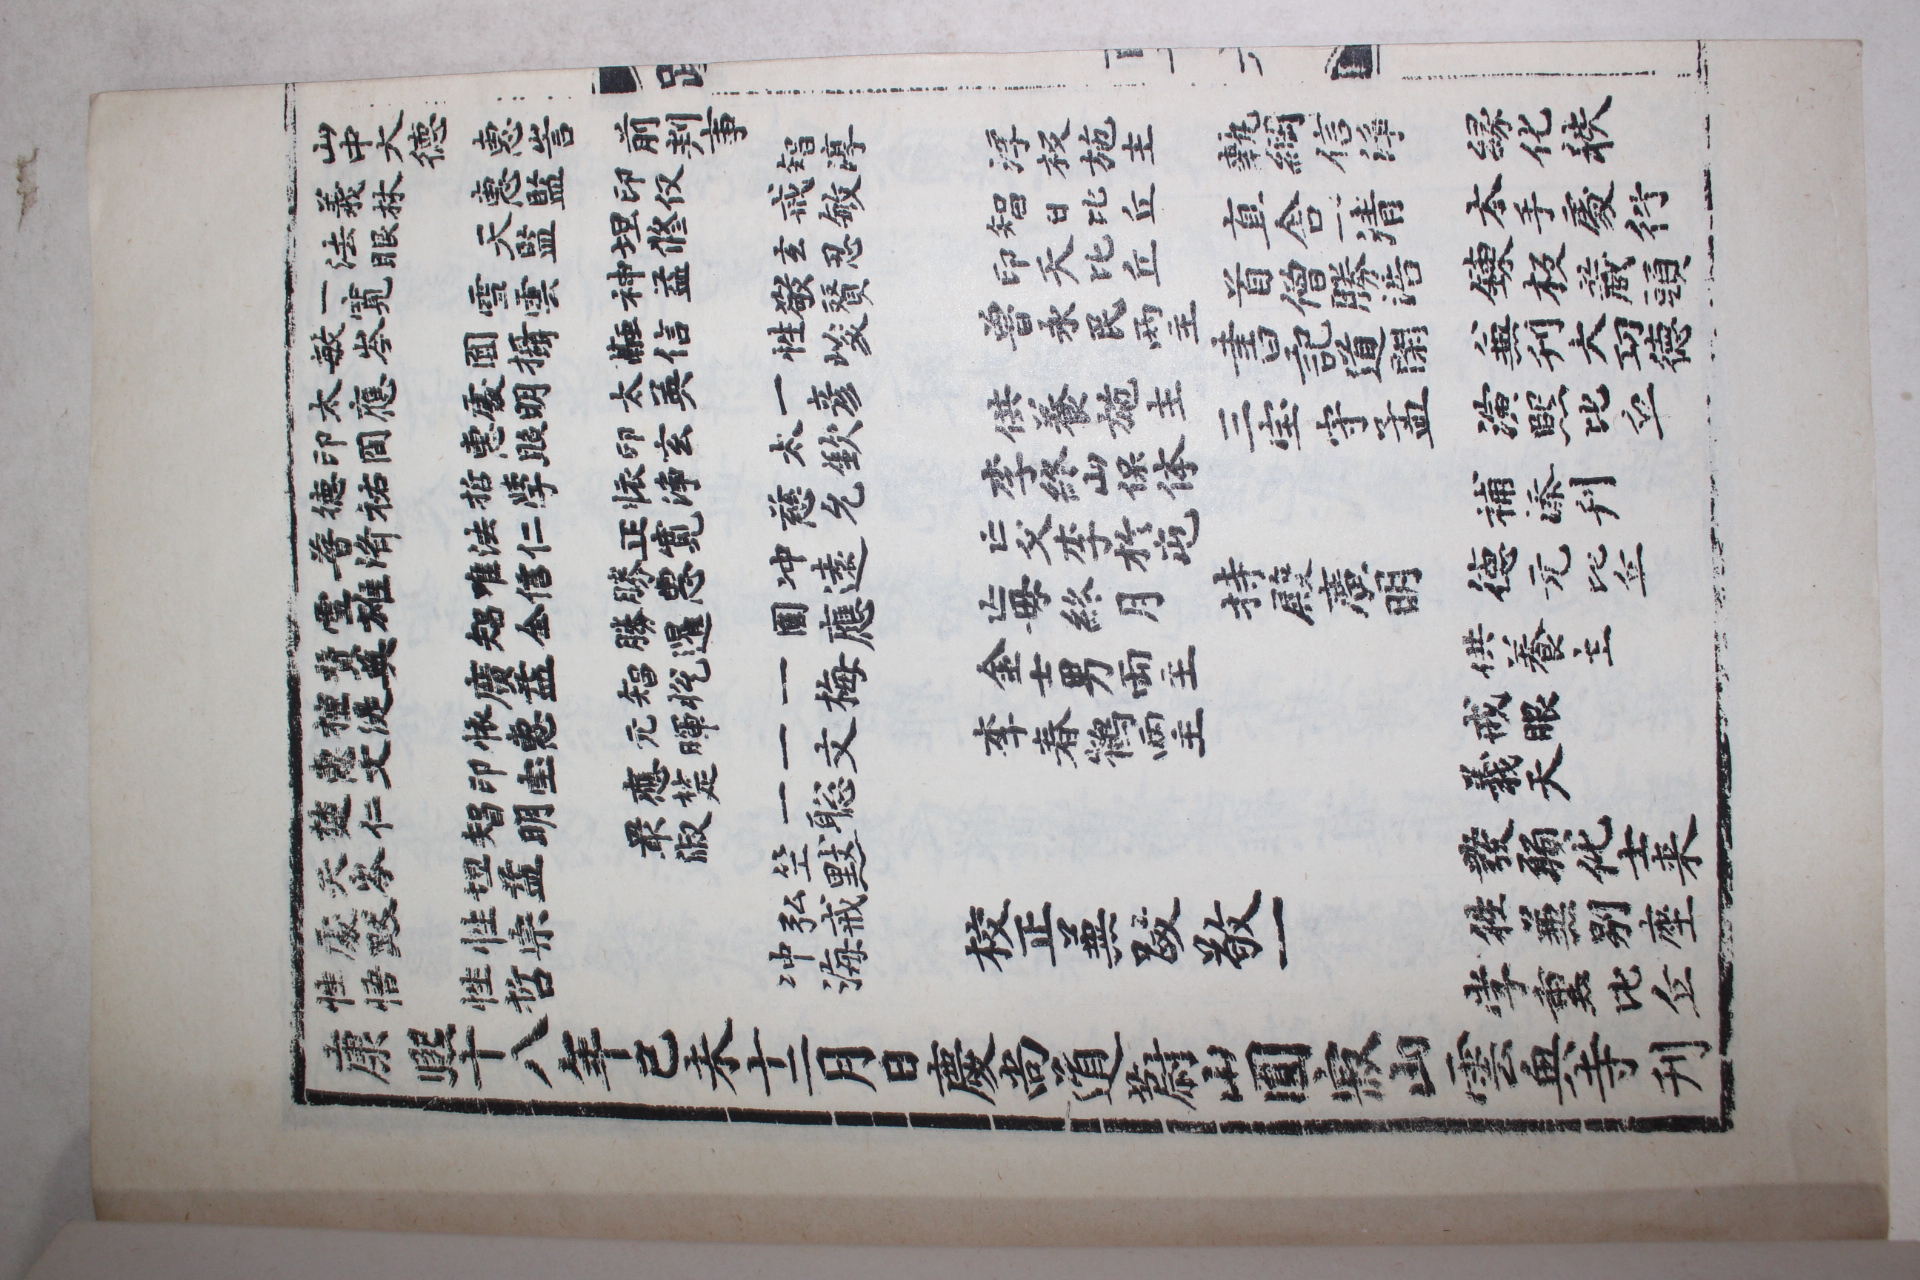 跋
山中大德
義林
法眼
一寬
敏岑
太應
印間
德祐
普濟
雪雄
贊英
惠文
楚仁
天岑
處默
性悟
惠訔
惠監
天監
雪雲
圓攝
處明
惠照
哲學
法仁
唯信
智全
廣益
懷惠
印宝
智明
坦益
性崇
性哲
前判事
印仅
坦修
神益
融信
太英
印玄
懷淨
正寬
勝惠
勝暹
智悅
元暉
應楚
最淑
智淳
戒敏
玄忍
敬賢
性峻
一彦
太欽
慈允
冲遠
圓應
一梅
一文
一聡
竺默
弘戒
冲海
浮板施主
智日比丘
印天比丘
曾承民兩主
供養施主
李終山保体
亡父李於屯
亡母終月
金士男兩主
李春鶴兩主
校正無㱓敬一
執綱信淨
直舍一清
首僧勝浩
書記道閑
三宝守孟
持殿廣明
緣化秩
夲手處行
鍊板藏頭
公兼刊大功德
演熙比丘
補添刊
德元比丘
供養主
戒眼
義天
發願化士來
往兼別座
學重比丘
康熙十八年己未十二月日慶尚道蔚山圓寂山雲興寺刊